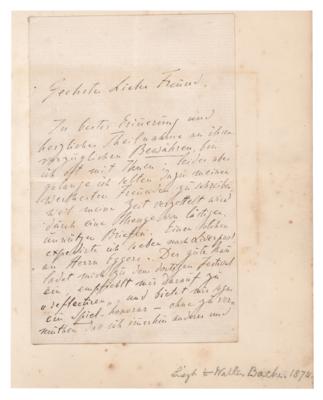 Geehrter Lieber Freund,
In bester Erinerung und
herzlicher Theilnahme an ihren
vorzüglichen Bewähren, bin
ich oft mit Ihnen; leider aber
gelange ich selten dazu meinen
werthesten Freunden zu schreiben
weil meine Zeit vergeudet wird
durch eine Menge von lästigen,
unnützen Briefen. Einen solchen
expedirte ich soeben nach Liverpool
an Herrn Eggers. Der gute Mann
ladet mich zu dem dortigen festival
ein, empfiehlt mir darauf zu
„reflectiren", und bietet mir sogar
ein Spiel-honorar — ohne zu ver-
muthen das ich immerhin anderes und
Liszt to Walter Bache. 1874.